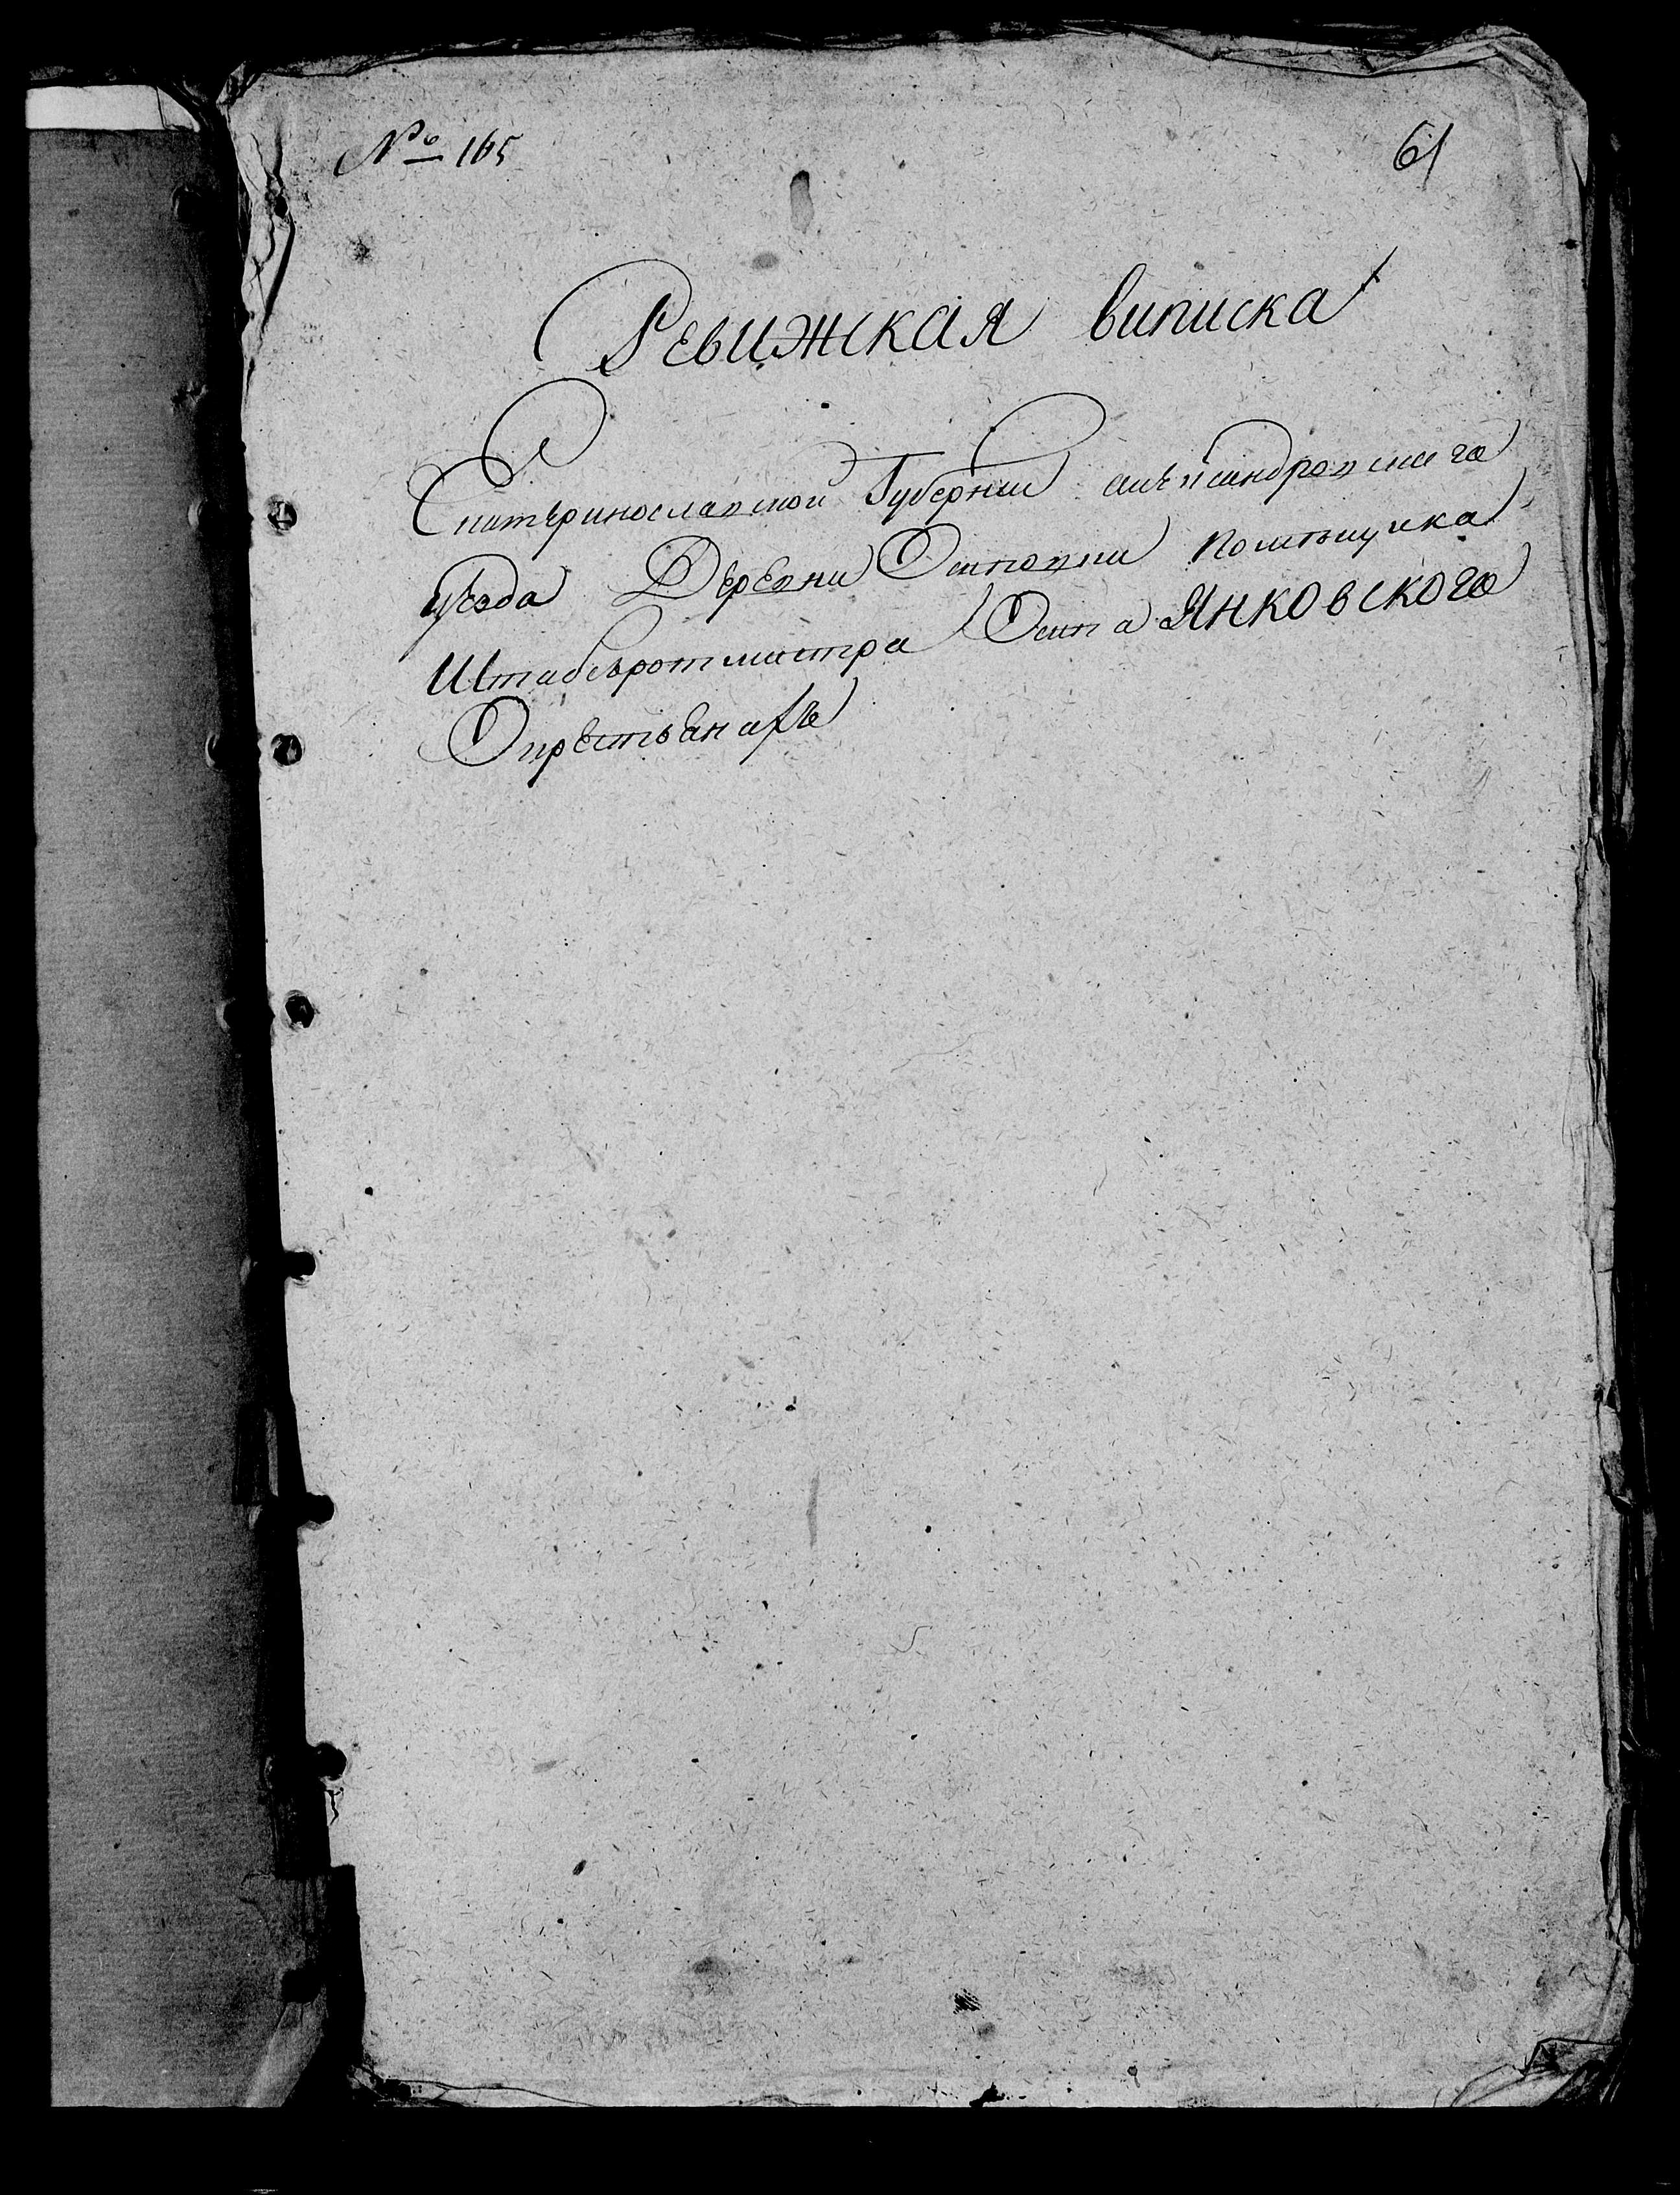 № 165
61
Ревижская виписка
Екатериославской Губернии алѣксандровскаго
уезда Деревни Осиповки помѣщика
Штабсъротмистра Осипа Янковского
Окрестьянахъ